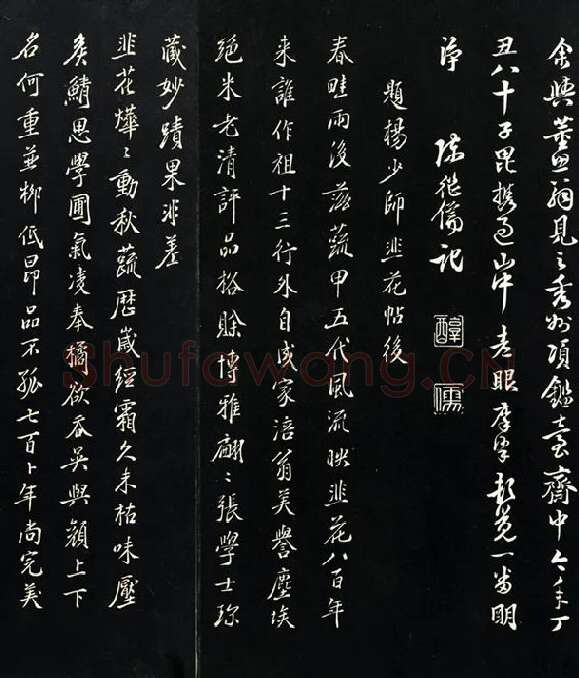 余與董思翁見之秀州項鑑臺齋中今年丁
丑八十子毘攜過山中老眼摩挲一番明
淨 陳繼儒記
醇儒
題楊少師韭花帖後
春畦雨後蔬甲五代風流映韭花八百年
來誰作祖十三行外自成家涪翁美譽塵埃
絕米老清評品格賒博雅翩〻張學士珎
藏妙蹟果非差
韭花燁〻動秋蔬歷歲經霜久未枯味壓
矦鯖思學圃氣凌奉橘欲吞吳與顏上下
名何重並柳低昂品不孤七百卜年尚完美
Shufawang.CN